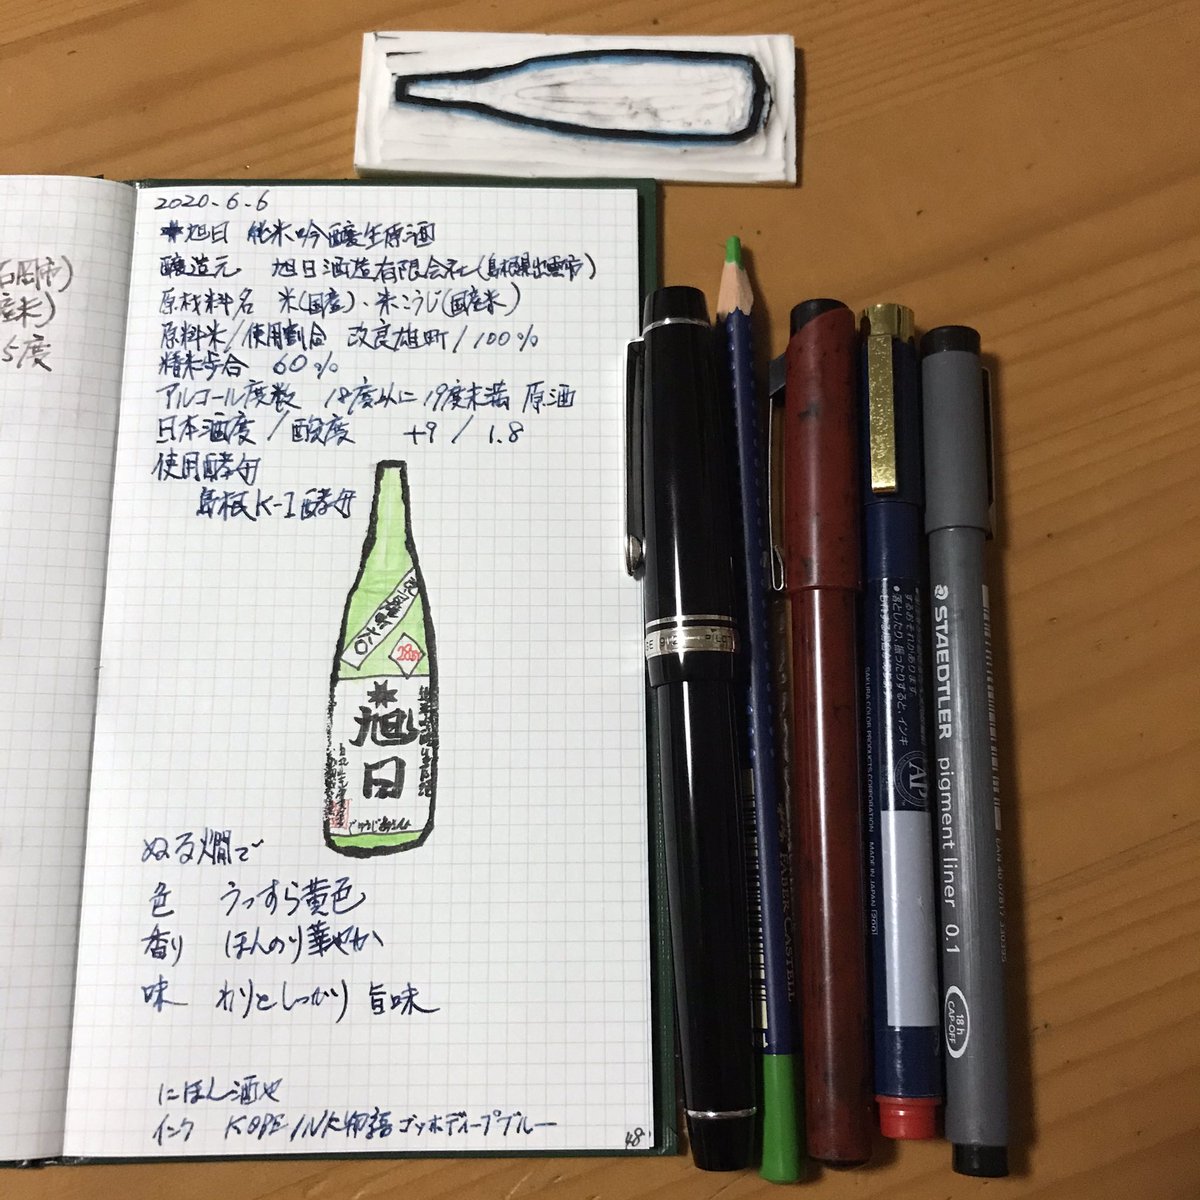 石岡市)
産米)
5度
2020.6.6
*旭日 純米吟醸生原酒
醸造元 旭日酒造有限会社(島根県出雲市)
原材料名 米(国産)、米こうじ(国産米)
原料米/使用割合 改良雄町/100%
精米歩合 60%
アルコール度数 18度以上19度未満 原酒
日本酒度/酸度 +9/1.8
使用酵母
島根K-1酵母
28BY
旭
日
ぬる燗で
色 うっすら黄色
香り ほんのり華やか
味 わりとしっかり旨味
にほん酒や
インク KOBE INK物語 ゴッホディープブルー
48
PILOT
FABER CASTELL
するおそれがあります。
落としたり、振ったりすると、インキ
SAKURA COLOR PRODUCTS CORPORATION MADE IN JAPAN
AP
STAEDTLER
pigment liner 0.1
18 h
CAP-OFF